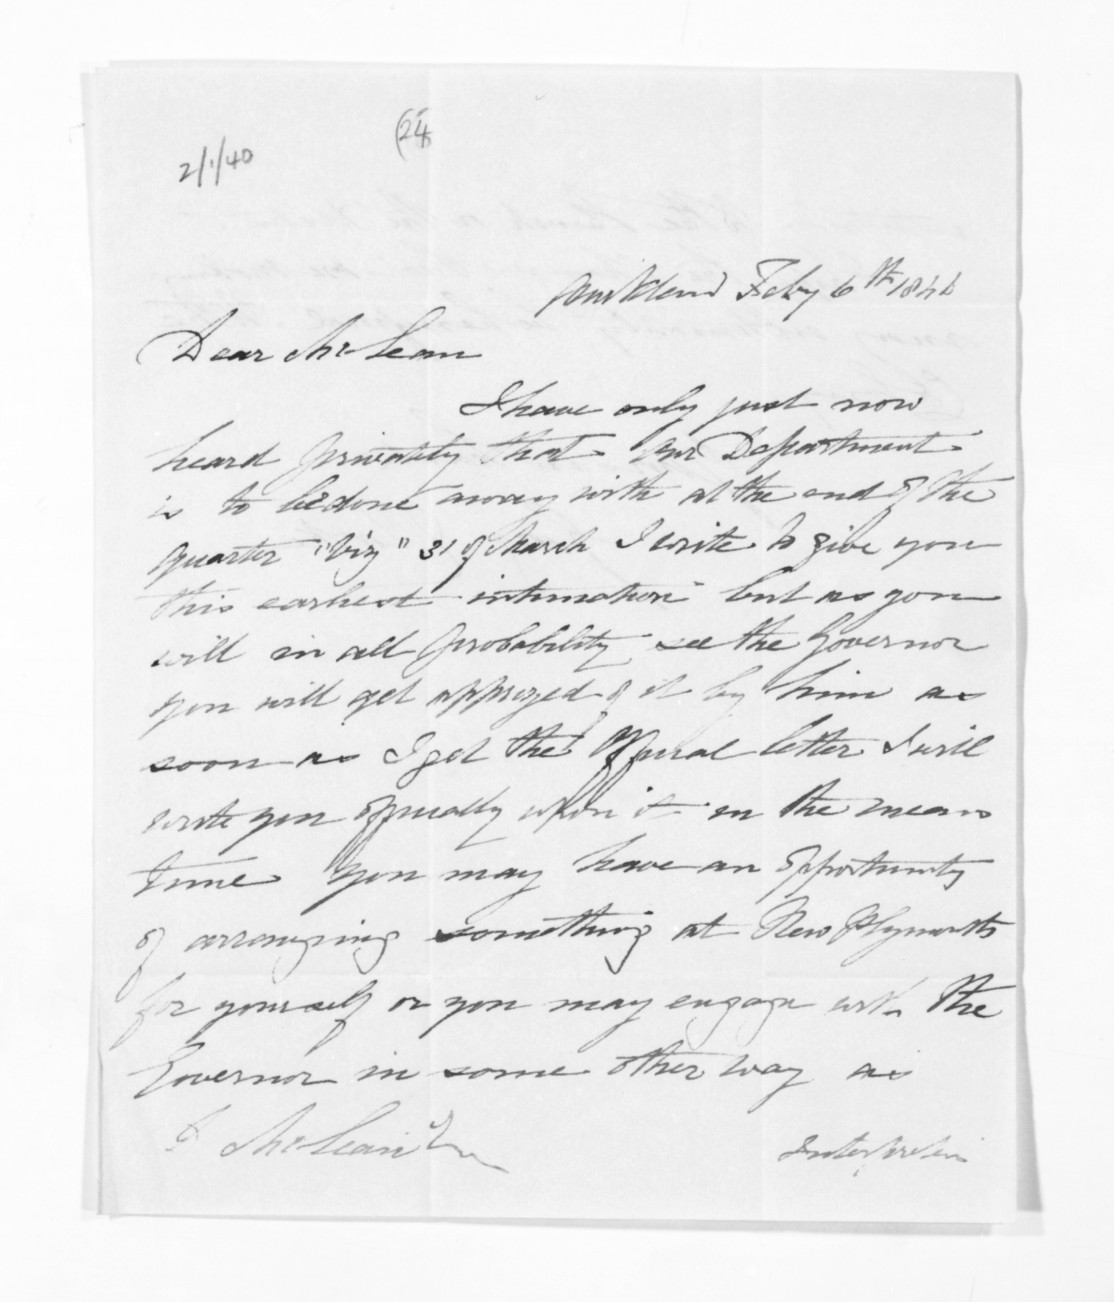 2/1/40
(24)
Auckland Feby 6th 1846
Dear McLean
I have only just now
heard privately that our Department
is to be done away with at the end of the
quarter "Viz" 31 of March I write to give you
this earliest intimation but as you
will in all probability see the Governor
you will get apprized of it by him as
soon as I get the Official letter I will
write you officially upon it in the mean
time you may have an opportunity
of arranging something at New Plymouth
for yourself or you may engage with the
Governor in some other way as
D McLean
Interpreter